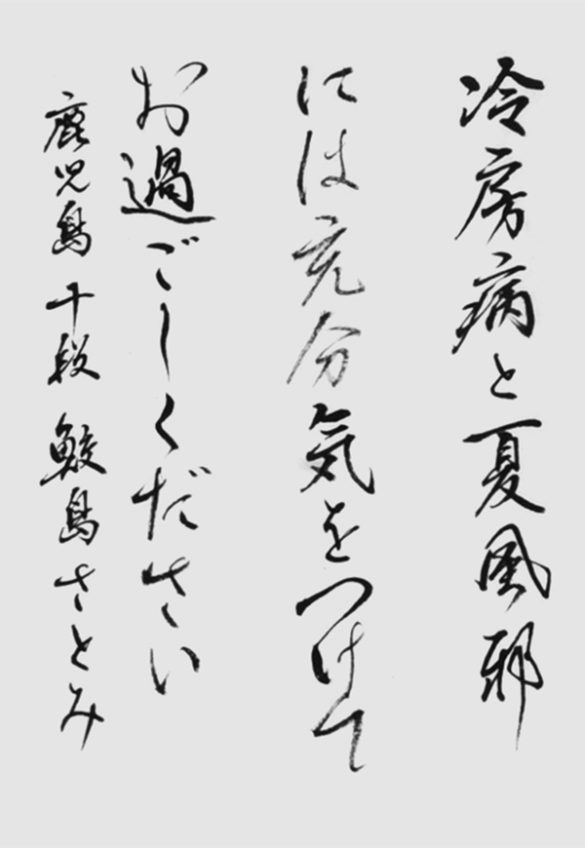 冷房病と夏風邪
には充分気をつけて
お過ごしください
鹿児島 十段 鮫島さとみ